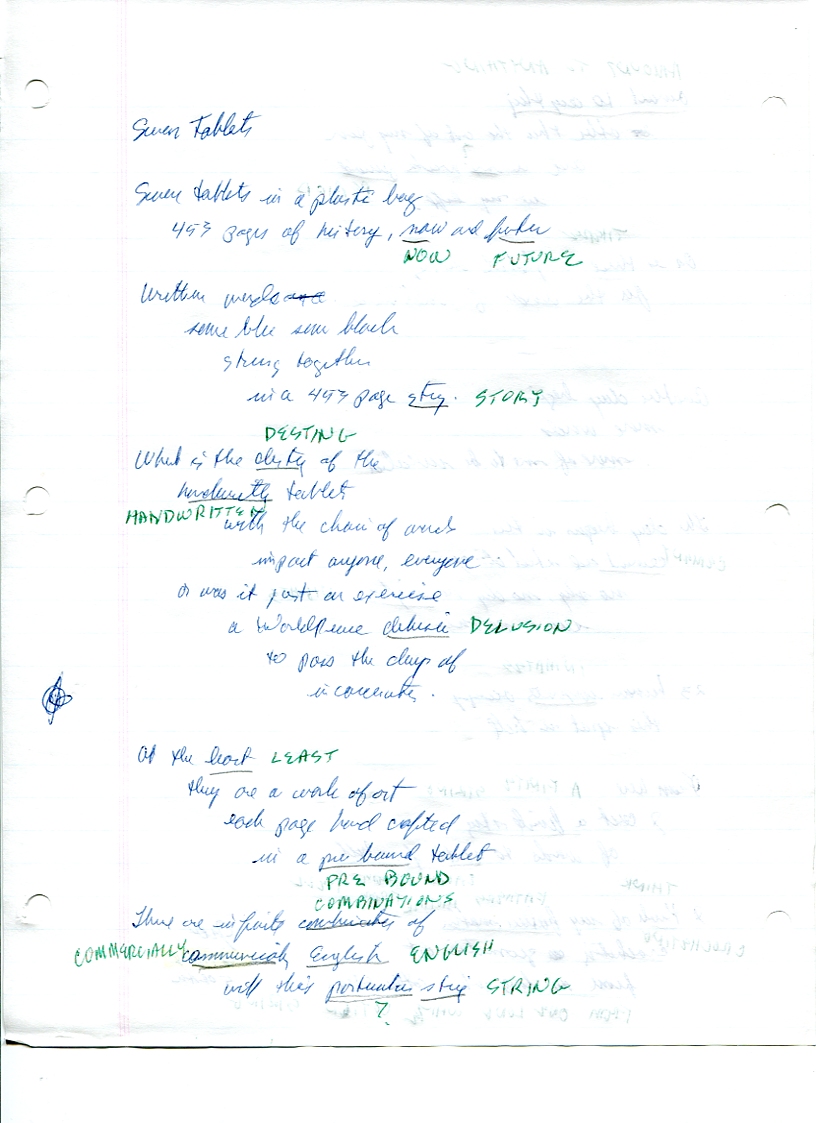 Seven Tablets
Seven tablets in a plastic bag
493 pages of history, now and future
NOW FUTURE
Written words
some blue some black
strung together
in a 493 page story. STORY
DESTING
What is the destiny of the
handwritten tablets
HANDWRITTEN
with the chain of words
impact anyone, everyone
or was it just an exercise
a WorldPeace delusion DELUSION
to pass the days of
incarceration.
At the least LEAST
they are a work of art
each page hand crafted
in a pre bound tablet
PRE BOUND
COMBINATIONS
There are infinite combinations of
COMMERCIALLY commercially English ENGLISH
will this string STRING
?